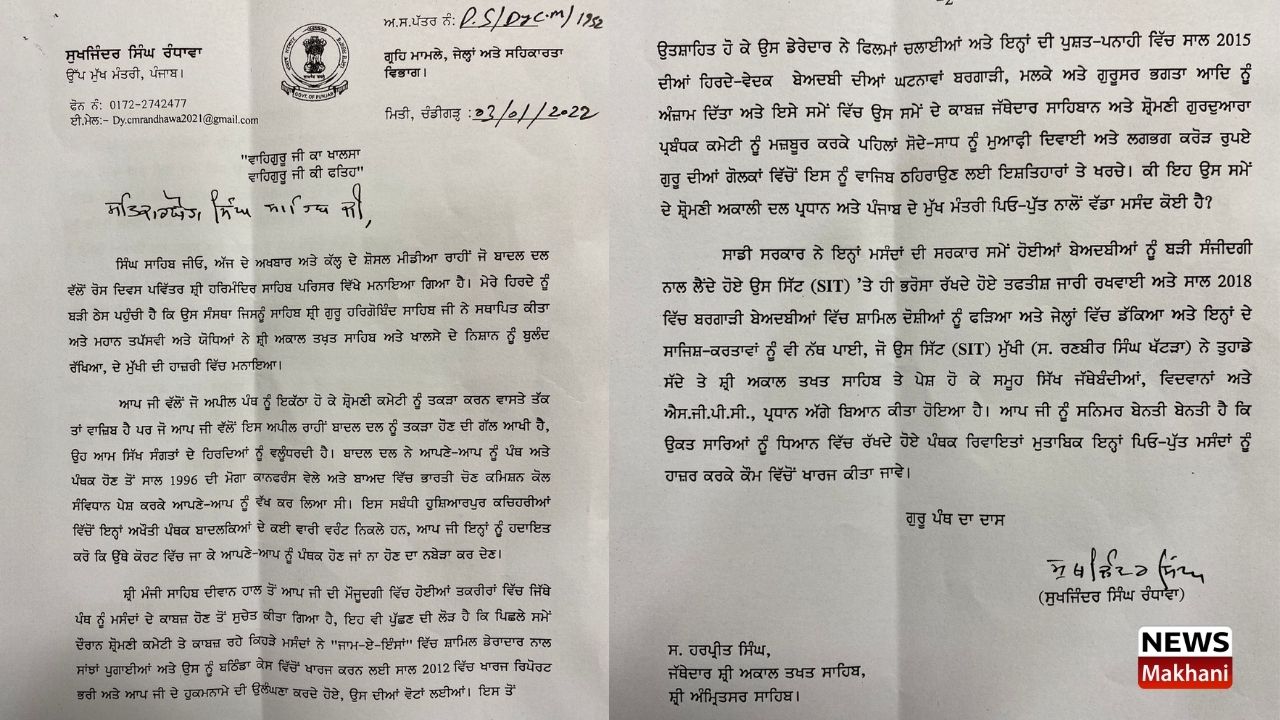 ਸੁਖਜਿੰਦਰ ਸਿੰਘ ਰੰਧਾਵਾ
ਉੱਪ ਮੁੱਖ ਮੰਤਰੀ, ਪੰਜਾਬ।
ਫੋਨ ਨੰ: 0172-2742477
ਈ.ਮੇਲ:- Dy.cmrandhawa2021@gmail.com
GOVT. OF PUNJAB
ਅ.ਸ.ਪੱਤਰ ਨੰ: P.S/Dy.C.M/1952
ਗ੍ਰਹਿ ਮਾਮਲੇ, ਜੇਲ੍ਹਾਂ ਅਤੇ ਸਹਿਕਾਰਤਾ
ਵਿਭਾਗ।
ਮਿਤੀ, ਚੰਡੀਗੜ੍ਹ : 03/01/2022
"ਵਾਹਿਗੁਰੂ ਜੀ ਕਾ ਖਾਲਸਾ
ਵਾਹਿਗੁਰੂ ਜੀ ਕੀ ਫਤਿਹ"
ਸਤਿਕਾਰਯੋਗ ਸਿੰਘ ਸਾਹਿਬ ਜੀ,
ਸਿੰਘ ਸਾਹਿਬ ਜੀਓ, ਅੱਜ ਦੇ ਅਖਬਾਰ ਅਤੇ ਕੱਲ੍ਹ ਦੇ ਸ਼ੋਸਲ ਮੀਡੀਆ ਰਾਹੀਂ ਜੋ ਬਾਦਲ ਦਲ
ਵੱਲੋਂ ਰੋਸ ਦਿਵਸ ਪਵਿੱਤਰ ਸ਼੍ਰੀ ਹਰਿਮੰਦਿਰ ਸਾਹਿਬ ਪਰਿਸਰ ਵਿੱਖੇ ਮਨਾਇਆ ਗਿਆ ਹੈ। ਮੇਰੇ ਹਿਰਦੇ ਨੂੰ
ਬੜੀ ਠੇਸ ਪਹੁੰਚੀ ਹੈ ਕਿ ਉਸ ਸੰਸਥਾ ਜਿਸਨੂੰ ਸਾਹਿਬ ਸ਼੍ਰੀ ਗੁਰੂ ਹਰਿਗੋਬਿੰਦ ਸਾਹਿਬ ਜੀ ਨੇ ਸਥਾਪਿਤ ਕੀਤਾ
ਅਤੇ ਮਹਾਨ ਤਪੱਸਵੀ ਅਤੇ ਯੋਧਿਆਂ ਨੇ ਸ਼੍ਰੀ ਅਕਾਲ ਤਖ਼ਤ ਸਾਹਿਬ ਅਤੇ ਖਾਲਸੇ ਦੇ ਨਿਸ਼ਾਨ ਨੂੰ ਬੁਲੰਦ
ਰੱਖਿਆ, ਦੇ ਮੁੱਖੀ ਦੀ ਹਾਜ਼ਰੀ ਵਿੱਚ ਮਨਾਇਆ।
ਆਪ ਜੀ ਵੱਲੋਂ ਜੋ ਅਪੀਲ ਪੰਥ ਨੂੰ ਇਕੱਠਾ ਹੋ ਕੇ ਸ਼੍ਰੋਮਣੀ ਕਮੇਟੀ ਨੂੰ ਤਕੜਾ ਕਰਨ ਵਾਸਤੇ ਤੱਕ
ਤਾਂ ਵਾਜ਼ਿਬ ਹੈ ਪਰ ਜੋ ਆਪ ਜੀ ਵੱਲੋਂ ਇਸ ਅਪੀਲ ਰਾਹੀਂ ਬਾਦਲ ਦਲ ਨੂੰ ਤਕੜਾ ਹੋਣ ਦੀ ਗੱਲ ਆਖੀ ਹੈ,
ਉਹ ਆਮ ਸਿੱਖ ਸੰਗਤਾਂ ਦੇ ਹਿਰਦਿਆਂ ਨੂੰ ਵਲੂੰਧਰਦੀ ਹੈ। ਬਾਦਲ ਦਲ ਨੇ ਆਪਣੇ-ਆਪ ਨੂੰ ਪੰਥ ਅਤੇ
ਪੰਥਕ ਹੋਣ ਤੋਂ ਸਾਲ 1996 ਦੀ ਮੋਗਾ ਕਾਨਫਰੰਸ ਵੇਲੇ ਅਤੇ ਬਾਅਦ ਵਿੱਚ ਭਾਰਤੀ ਚੋਣ ਕਮਿਸ਼ਨ ਕੋਲ
ਸੰਵਿਧਾਨ ਪੇਸ਼ ਕਰਕੇ ਆਪਣੇ-ਆਪ ਨੂੰ ਵੱਖ ਕਰ ਲਿਆ ਸੀ। ਇਸ ਸਬੰਧੀ ਹੁਸ਼ਿਆਰਪੁਰ ਕਚਿਹਰੀਆਂ
ਵਿੱਚੋਂ ਇਨ੍ਹਾਂ ਅਖੌਤੀ ਪੰਥਕ ਬਾਦਲਕਿਆਂ ਦੇ ਕਈ ਵਾਰੀ ਵਰੰਟ ਨਿਕਲੇ ਹਨ, ਆਪ ਜੀ ਇਨ੍ਹਾਂ ਨੂੰ ਹਦਾਇਤ
ਕਰੋ ਕਿ ਉੱਥੇ ਕੋਰਟ ਵਿੱਚ ਜਾ ਕੇ ਆਪਣੇ-ਆਪ ਨੂੰ ਪੰਥਕ ਹੋਣ ਜਾਂ ਨਾ ਹੋਣ ਦਾ ਨਬੇੜਾ ਕਰ ਦੇਣ।
ਸ਼੍ਰੀ ਮੰਜੀ ਸਾਹਿਬ ਦੀਵਾਨ ਹਾਲ ਤੋਂ ਆਪ ਜੀ ਦੀ ਮੌਜੂਦਗੀ ਵਿੱਚ ਹੋਈਆਂ ਤਕਰੀਰਾਂ ਵਿੱਚ ਜਿੱਥੇ
ਪੰਥ ਨੂੰ ਮਸੰਦਾਂ ਦੇ ਕਾਬਜ਼ ਹੋਣ ਤੋਂ ਸੁਚੇਤ ਕੀਤਾ ਗਿਆ ਹੈ, ਇਹ ਵੀ ਪੁੱਛਣ ਦੀ ਲੋੜ ਹੈ ਕਿ ਪਿਛਲੇ ਸਮੇਂ
ਦੌਰਾਨ ਸ਼੍ਰੋਮਣੀ ਕਮੇਟੀ ਤੇ ਕਾਬਜ਼ ਰਹੇ ਕਿਹੜੇ ਮਸੰਦਾਂ ਨੇ "ਜਾਮ-ਏ-ਇੰਸਾਂ" ਵਿੱਚ ਸ਼ਾਮਿਲ ਡੇਰਾਦਾਰ ਨਾਲ
ਸਾਂਝਾਂ ਪੁਗਾਈਆਂ ਅਤੇ ਉਸ ਨੂੰ ਬਠਿੰਡਾ ਕੇਸ ਵਿੱਚੋਂ ਖਾਰਜ ਕਰਨ ਲਈ ਸਾਲ 2012 ਵਿੱਚ ਖਾਰਜ ਰਿਪੋਰਟ
ਭਰੀ ਅਤੇ ਆਪ ਜੀ ਦੇ ਹੁਕਮਨਾਮੇ ਦੀ ਉਲੰਘਣਾ ਕਰਦੇ ਹੋਏ, ਉਸ ਦੀਆਂ ਵੋਟਾਂ ਲਈਆਂ। ਇਸ ਤੋਂ
-2
ਉਤਸ਼ਾਹਿਤ ਹੋ ਕੇ ਉਸ ਡੇਰੇਦਾਰ ਨੇ ਫਿਲਮਾਂ ਚਲਾਈਆਂ ਅਤੇ ਇਨ੍ਹਾਂ ਦੀ ਪੁਸ਼ਤ-ਪਨਾਹੀ ਵਿੱਚ ਸਾਲ 2015
ਦੀਆਂ ਹਿਰਦੇ-ਵੇਦਕ ਬੇਅਦਬੀ ਦੀਆਂ ਘਟਨਾਵਾਂ ਬਰਗਾੜੀ, ਮਲਕੇ ਅਤੇ ਗੁਰੂਸਰ ਭਗਤਾ ਆਦਿ ਨੂੰ
ਅੰਜ਼ਾਮ ਦਿੱਤਾ ਅਤੇ ਇਸੇ ਸਮੇਂ ਵਿੱਚ ਉਸ ਸਮੇਂ ਦੇ ਕਾਬਜ਼ ਜੱਥੇਦਾਰ ਸਾਹਿਬਾਨ ਅਤੇ ਸ਼੍ਰੋਮਣੀ ਗੁਰਦੁਆਰਾ
ਪ੍ਰਬੰਧਕ ਕਮੇਟੀ ਨੂੰ ਮਜ਼ਬੂਰ ਕਰਕੇ ਪਹਿਲਾਂ ਸੋਦੇ-ਸਾਧ ਨੂੰ ਮੁਆਫ਼ੀ ਦਿਵਾਈ ਅਤੇ ਲਗਭਗ ਕਰੋੜ ਰੁਪਏ
ਗੁਰੂ ਦੀਆਂ ਗੋਲਕਾਂ ਵਿੱਚੋਂ ਇਸ ਨੂੰ ਵਾਜਿਬ ਠਹਿਰਾਉਣ ਲਈ ਇਸ਼ਤਿਹਾਰਾਂ ਤੇ ਖਰਚੇ। ਕੀ ਇਹ ਉਸ ਸਮੇਂ
ਦੇ ਸ਼੍ਰੋਮਣੀ ਅਕਾਲੀ ਦਲ ਪ੍ਰਧਾਨ ਅਤੇ ਪੰਜਾਬ ਦੇ ਮੁੱਖ ਮੰਤਰੀ ਪਿਓ-ਪੁੱਤ ਨਾਲੋਂ ਵੱਡਾ ਮਸੰਦ ਕੋਈ ਹੈ?
ਸਾਡੀ ਸਰਕਾਰ ਨੇ ਇਨ੍ਹਾਂ ਮਸੰਦਾਂ ਦੀ ਸਰਕਾਰ ਸਮੇਂ ਹੋਈਆਂ ਬੇਅਦਬੀਆਂ ਨੂੰ ਬੜੀ ਸੰਜੀਦਗੀ
ਨਾਲ ਲੈਂਦੇ ਹੋਏ ਉਸ ਸਿੱਟ (SIT) 'ਤੇ ਹੀ ਭਰੋਸਾ ਰੱਖਦੇ ਹੋਏ ਤਫਤੀਸ਼ ਜਾਰੀ ਰਖਵਾਈ ਅਤੇ ਸਾਲ 2018
ਵਿੱਚ ਬਰਗਾੜੀ ਬੇਅਦਬੀਆਂ ਵਿੱਚ ਸ਼ਾਮਿਲ ਦੋਸ਼ੀਆਂ ਨੂੰ ਫੜਿਆ ਅਤੇ ਜੇਲ੍ਹਾਂ ਵਿੱਚ ਡੱਕਿਆ ਅਤੇ ਇਨ੍ਹਾਂ ਦੇ
ਸਾਜਿਸ਼-ਕਰਤਾਵਾਂ ਨੂੰ ਵੀ ਨੱਥ ਪਾਈ, ਜੋ ਉਸ ਸਿੱਟ (SIT) ਮੁੱਖੀ (ਸ. ਰਣਬੀਰ ਸਿੰਘ ਖੱਟੜਾ) ਨੇ ਤੁਹਾਡੇ
ਸੱਦੇ ਤੇ ਸ਼੍ਰੀ ਅਕਾਲ ਤਖਤ ਸਾਹਿਬ ਤੇ ਪੇਸ਼ ਹੋ ਕੇ ਸਮੂਹ ਸਿੱਖ ਜੱਥੇਬੰਦੀਆਂ, ਵਿਦਵਾਨਾਂ ਅਤੇ
ਐਸ.ਜੀ.ਪੀ.ਸੀ., ਪ੍ਰਧਾਨ ਅੱਗੇ ਬਿਆਨ ਕੀਤਾ ਹੋਇਆ ਹੈ। ਆਪ ਜੀ ਨੂੰ ਸਨਿਮਰ ਬੇਨਤੀ ਬੇਨਤੀ ਹੈ ਕਿ
ਉਕਤ ਸਾਰਿਆਂ ਨੂੰ ਧਿਆਨ ਵਿੱਚ ਰੱਖਦੇ ਹੋਏ ਪੰਥਕ ਰਿਵਾਇਤਾਂ ਮੁਤਾਬਿਕ ਇਨ੍ਹਾਂ ਪਿਓ-ਪੁੱਤ ਮਸੰਦਾਂ ਨੂੰ
ਹਾਜ਼ਰ ਕਰਕੇ ਕੌਮ ਵਿੱਚੋਂ ਖਾਰਜ ਕੀਤਾ ਜਾਵੇ।
ਗੁਰੂ ਪੰਥ ਦਾ ਦਾਸ
ਸੁਖਜਿੰਦਰ ਸਿੰਘ
(ਸੁਖਜਿੰਦਰ ਸਿੰਘ ਰੰਧਾਵਾ)
ਸ. ਹਰਪ੍ਰੀਤ ਸਿੰਘ,
ਜੱਥੇਦਾਰ ਸ਼੍ਰੀ ਅਕਾਲ ਤਖਤ ਸਾਹਿਬ,
ਸ਼੍ਰੀ ਅੰਮ੍ਰਿਤਸਰ ਸਾਹਿਬ।
NEWS
Makhani